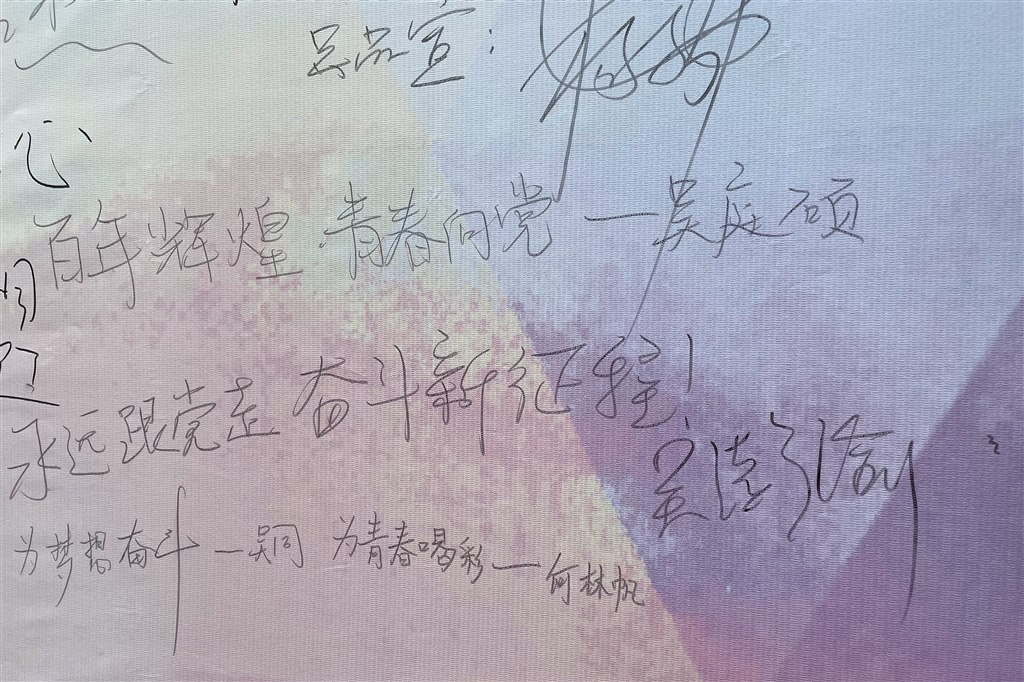 吴品宣：
心
百年辉煌 青春向党 — 吴庭硕
永远跟党走 奋斗新征程！
吴澎渝
为梦想奋斗 — 吴同 为青春喝彩 — 何林帆